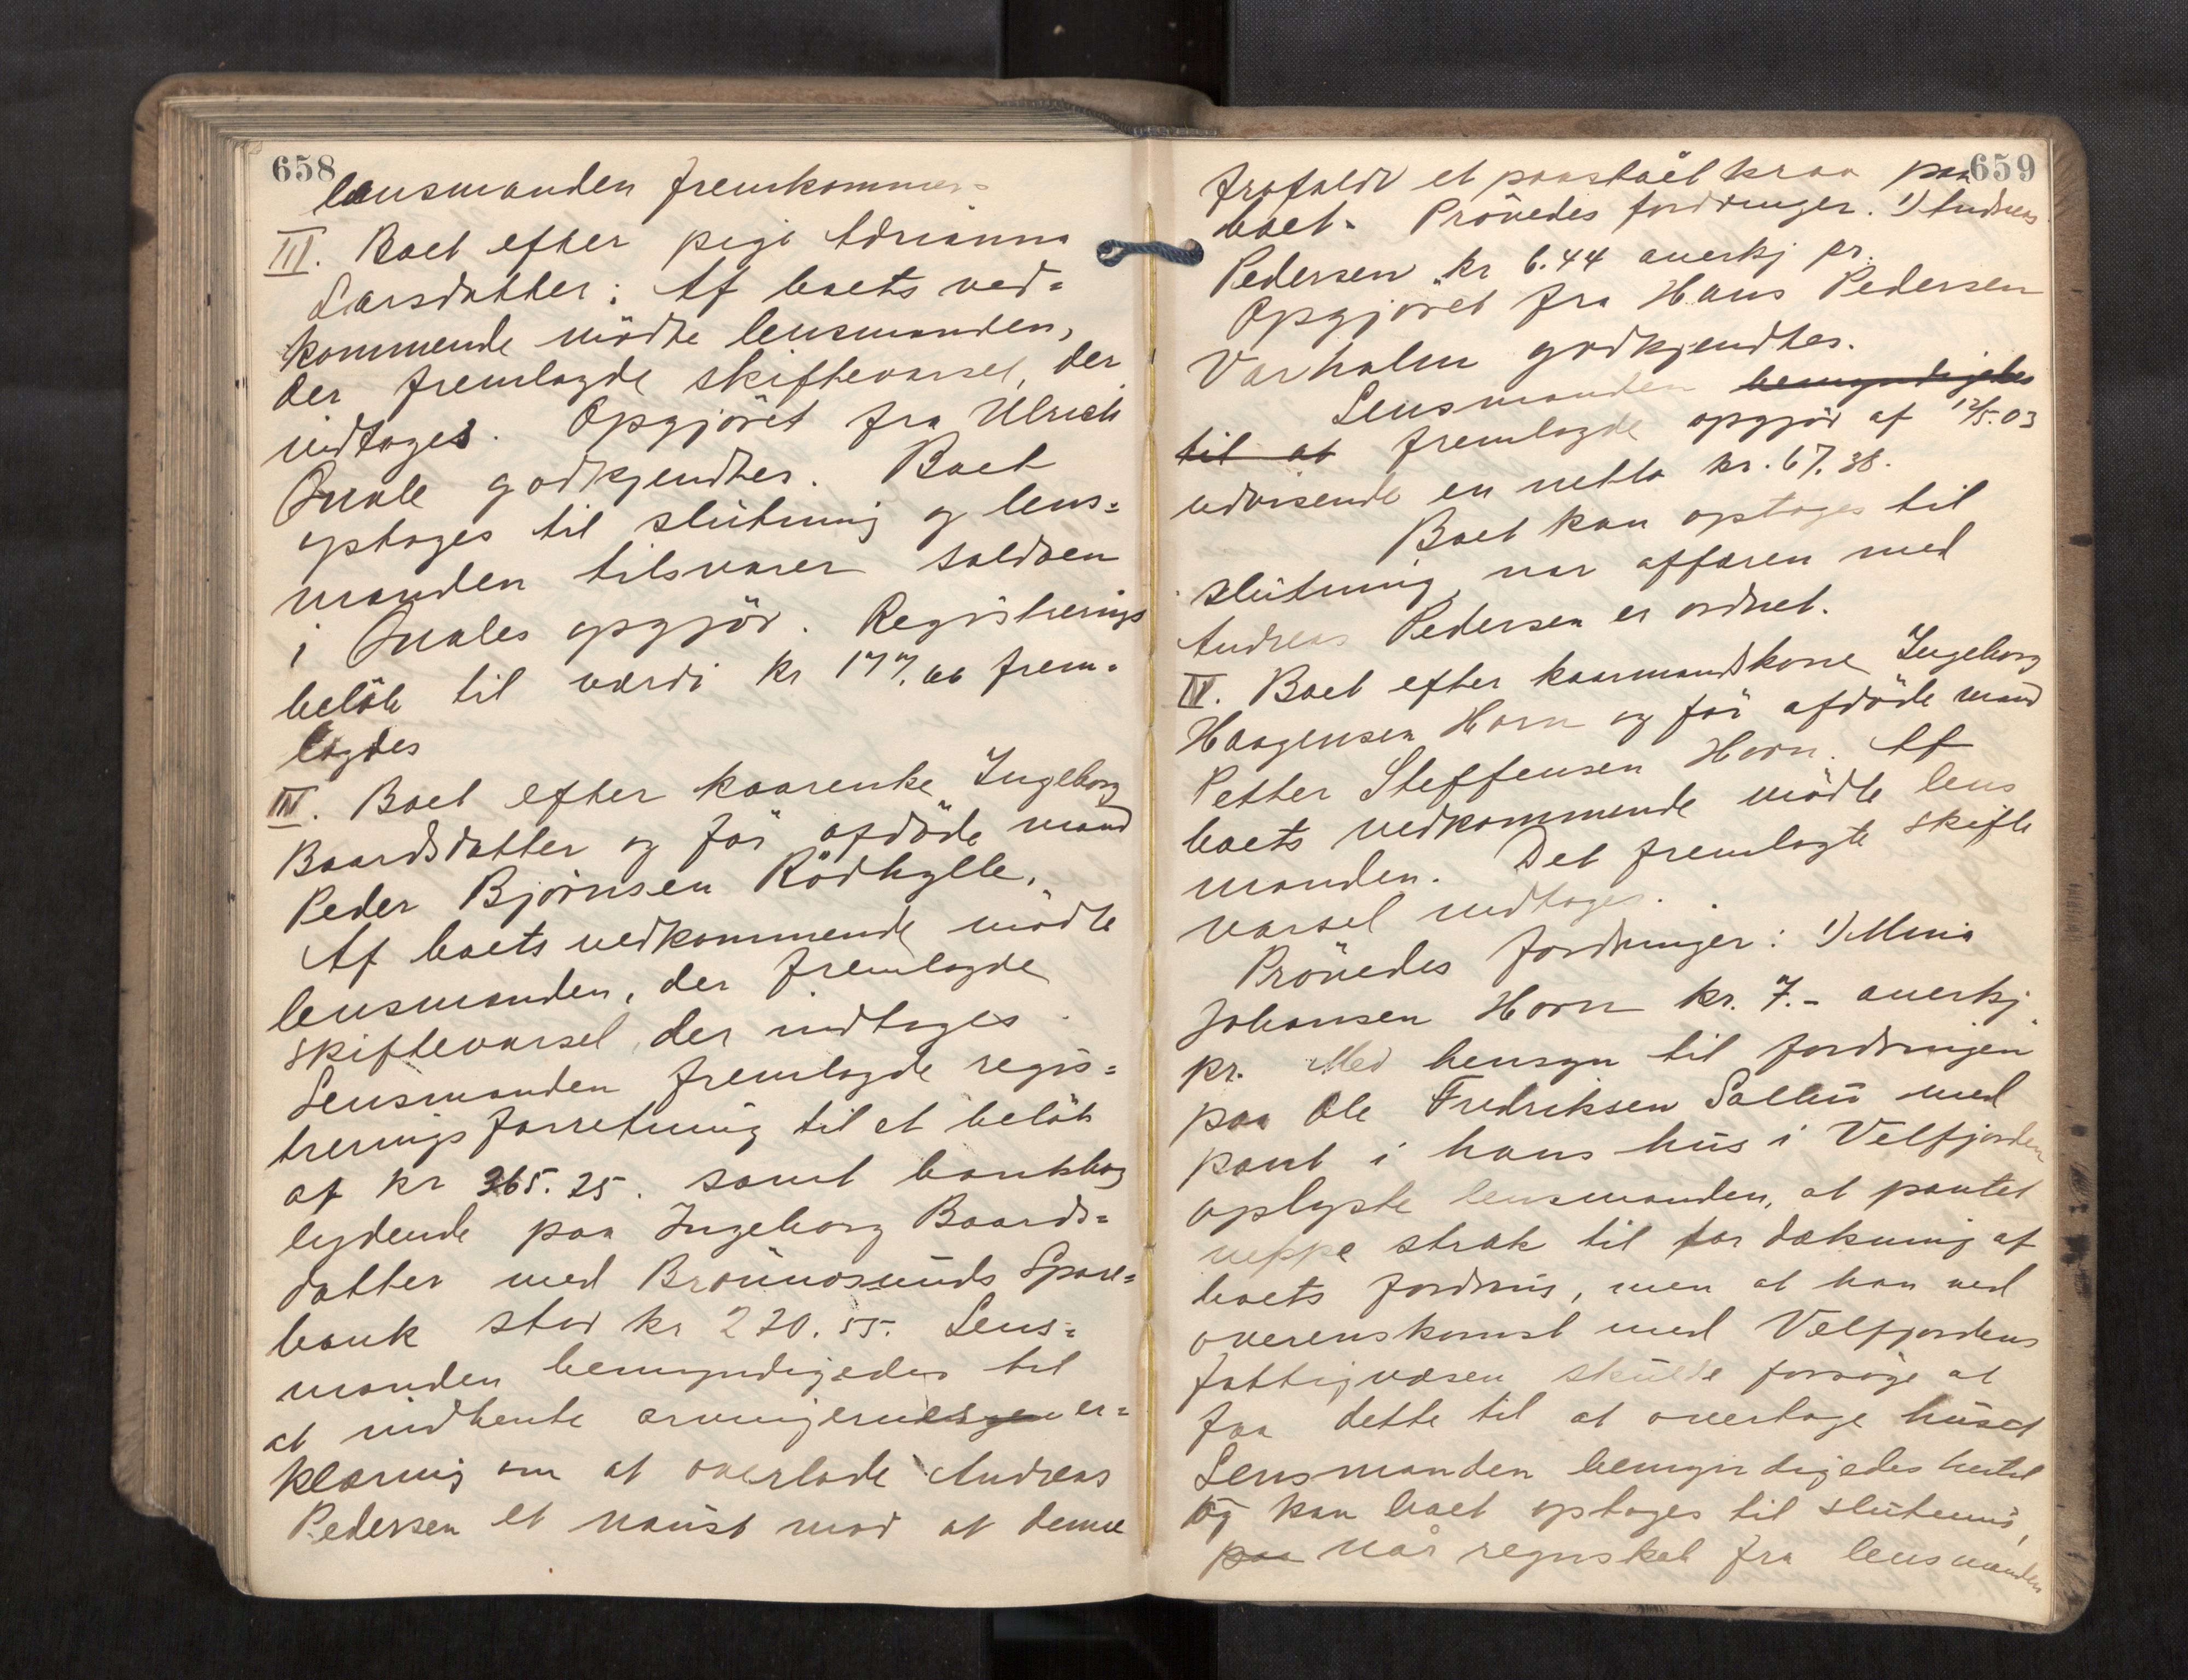 658
lensmanden fremkommer.
III. Boet efter pige Adrianna
Larsdatter: Af boets ved=
kommende mödte lensmanden,
der fremlagde skiftevarsel, der
indtages. Opgjöret fra Ulrich
Quale godkjendtes. Boet
optages til slutning og lens=
manden tilsvarer saldoen
i Quales opgjör. Registrerings
belöb til værdi kr 177. frem=
lagdes
IV. Boet efter kaarenke Ingeborg
Baardsdatter og för afdöde mand
Peder Björnsen Rödhylle.
Af boets vedkommende mödte
lensmanden, der fremlagde
skiftevarsel, der indtages.
Lensmanden fremlagde regis=
trerings forretning til et belöb
af kr 365.25. samt bankbog
lydende paa Ingeborg Baards=
datter med Brönnösunds Spare=
bank stor kr 220.55. Lens=
manden bemyndigedes til
at indhente arvingernes er=
klæring om at overlade Andreas
Pedersen et naust mod at denne
659
frafaldt et paastaaet krav paa
boet. Prövedes fordringer. 1) Andreas
Pedersen kr 6.44 anerkj pr.
Opgjöret fra Hans Pedersen
Varholm godkjendtes.
Lensmanden bemyndigedes
til at fremlagde opgjör af 12/5.03
udvisende en netto kr. 67.38.
Boet kan optages til
slutning, nar affæren med
Andreas Pedersen er ordnet.
IV. Boet efter kaarmandskone Ingeborg
Haagensen Horn og för afdöde mand
Petter Steffensen Horn. Af
boets vedkommende mödte lens
manden. Det fremlagte skifte
varsel indtages.
Prövedes fordringer: 1)
Johansen Horn kr. 7.- anerkj.
pr. Med hensyn til fordringen
paa Ole Fredriksen med
pant i hans hus i Velfjorden
oplyste lensmanden, at pantet
neppe strak til for dækning af
boets fordring, men at han ved
overenskomst med Velfjordens
fattigvæsen skulde forsöge at
faa dette til at overtage huset
Lensmanden bemyndigedes hertil
og kan boet optages til slutning,
paa når regnskab fra lensmanden